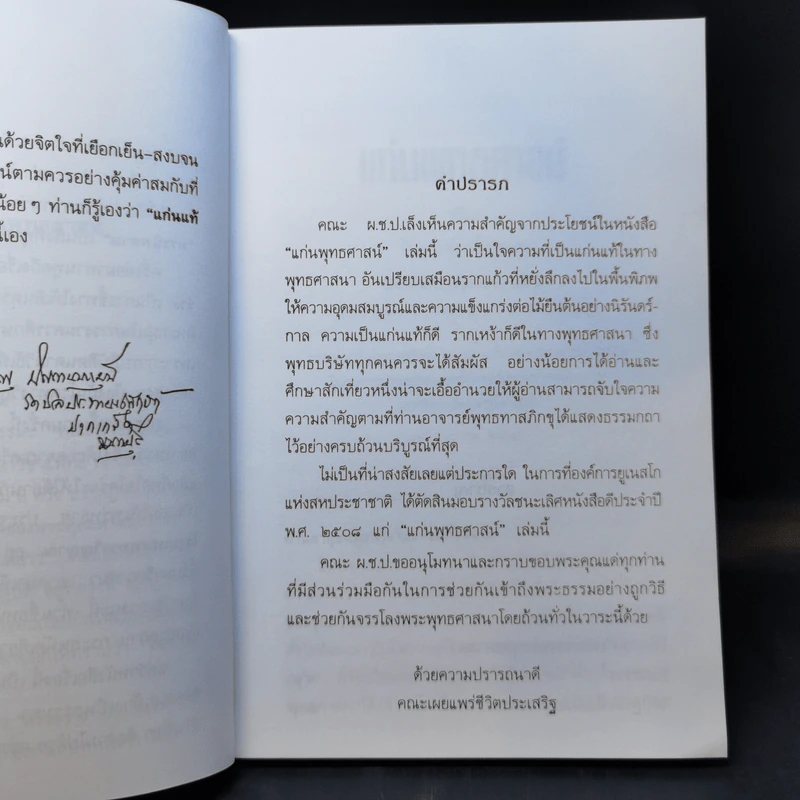 นด้วยจิตใจที่เยือกเย็น–สงบจน
น์ตามควรอย่างคุ้มค่าสมกับที่
น้อย ๆ ท่านก็รู้เองว่า “แก่นแท้
นี้เอง
คำปรารภ
คณะ ผ.ช.ป.เล็งเห็นความสำคัญจากประโยชน์ในหนังสือ
“แก่นพุทธศาสน์” เล่มนี้ ว่าเป็นใจความที่เป็นแก่นแท้ในทาง
พุทธศาสนา อันเปรียบเสมือนรากแก้วที่หยั่งลึกลงไปในพื้นพิภพ
ให้ความอุดมสมบูรณ์และความแข็งแกร่งต่อไม้ยืนต้นอย่างนิรันดร์-
กาล ความเป็นแก่นแท้ก็ดี รากเหง้าก็ดีในทางพุทธศาสนา ซึ่ง
พุทธบริษัททุกคนควรจะได้สัมผัส อย่างน้อยการได้อ่านและ
ศึกษาสักเที่ยวหนึ่งน่าจะเอื้ออำนวยให้ผู้อ่านสามารถจับใจความ
ความสำคัญตามที่ท่านอาจารย์พุทธทาสภิกขุได้แสดงธรรมกถา
ไว้อย่างครบถ้วนบริบูรณ์ที่สุด
ไม่เป็นที่น่าสงสัยเลยแต่ประการใด ในการที่องค์การยูเนสโก
แห่งสหประชาชาติ ได้ตัดสินมอบรางวัลชนะเลิศหนังสือดีประจำปี
พ.ศ. ๒๕๐๘ แก่ “แก่นพุทธศาสน์” เล่มนี้
คณะ ผ.ช.ป.ขออนุโมทนาและกราบขอบพระคุณแด่ทุกท่าน
ที่มีส่วนร่วมมือกันในการช่วยกันเข้าถึงพระธรรมอย่างถูกวิธี
และช่วยกันจรรโลงพระพุทธศาสนาโดยถ้วนทั่วในวาระนี้ด้วย
ด้วยความปรารถนาดี
คณะเผยแพร่ชีวิตประเสริฐ